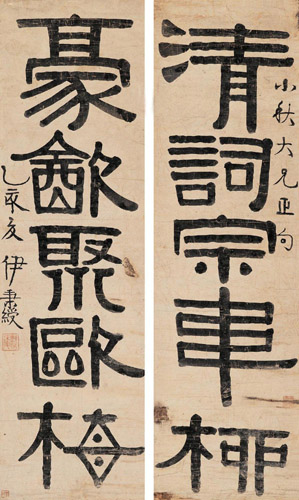 清詞宗車柳
小秋大兄正句
豪㱃聚歐梅
乙亥夏 伊秉綬